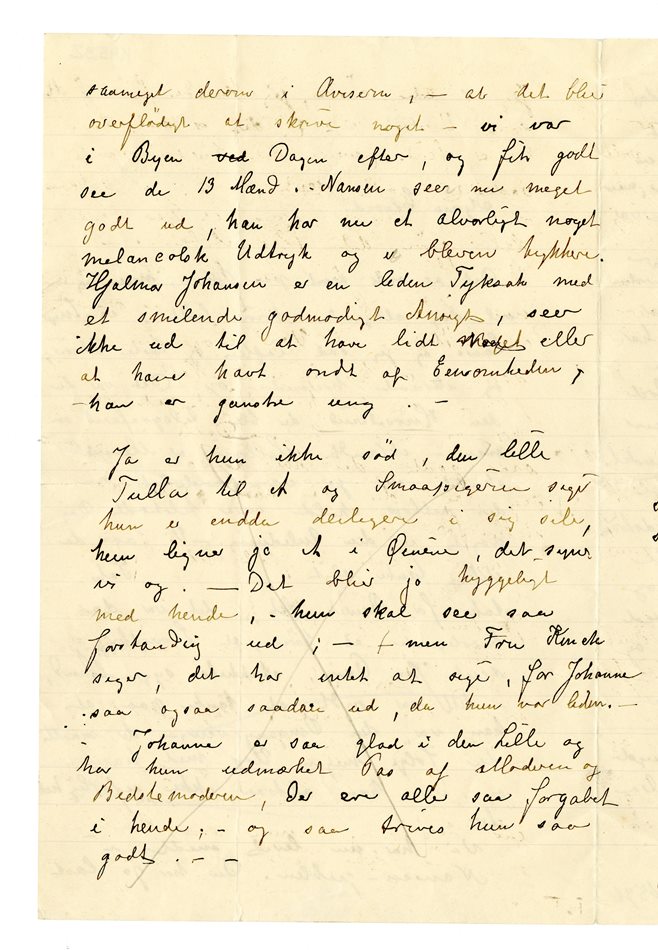 saameget derom i Aviserne, – at det blir
overflödigt at skrive noget – vi var
i Byen ved Dagen efter, og fik godt
see de 13 Mænd. – Nansen seer nu meget
godt ud, han har nu et alvorligt noget
melancolsk Udtryk og er bleven tykkere.
Hjalmar Johansen er en liden Tyksak med
et smilende godmodigt Ansigt, seer
ikke ud til at have lidt meget eller
at have havt ondt af Eensomheden,
– han er ganske ung. –
Ja er hun ikke söd, den lille
Tulla til A og Smaapigerne siger
hun er endda deiligere i sig selv,
hun ligner jo A i Öinene, det synes
vi og. – Det blir jo hyggeligt
med hende, – hun skal see saa
forstandig ud; – men Fru Kinck
siger, det har intet at sige, for Johanne
saa ogsaa saadan ud, da hun var liden. –
– Johanne er saa glad i den Lille og
har hun udmærket Pas af Moderen og
Bedstemoderen, der ere alle saa forgabet
i hende; – og saa trives hun saa
godt. – –